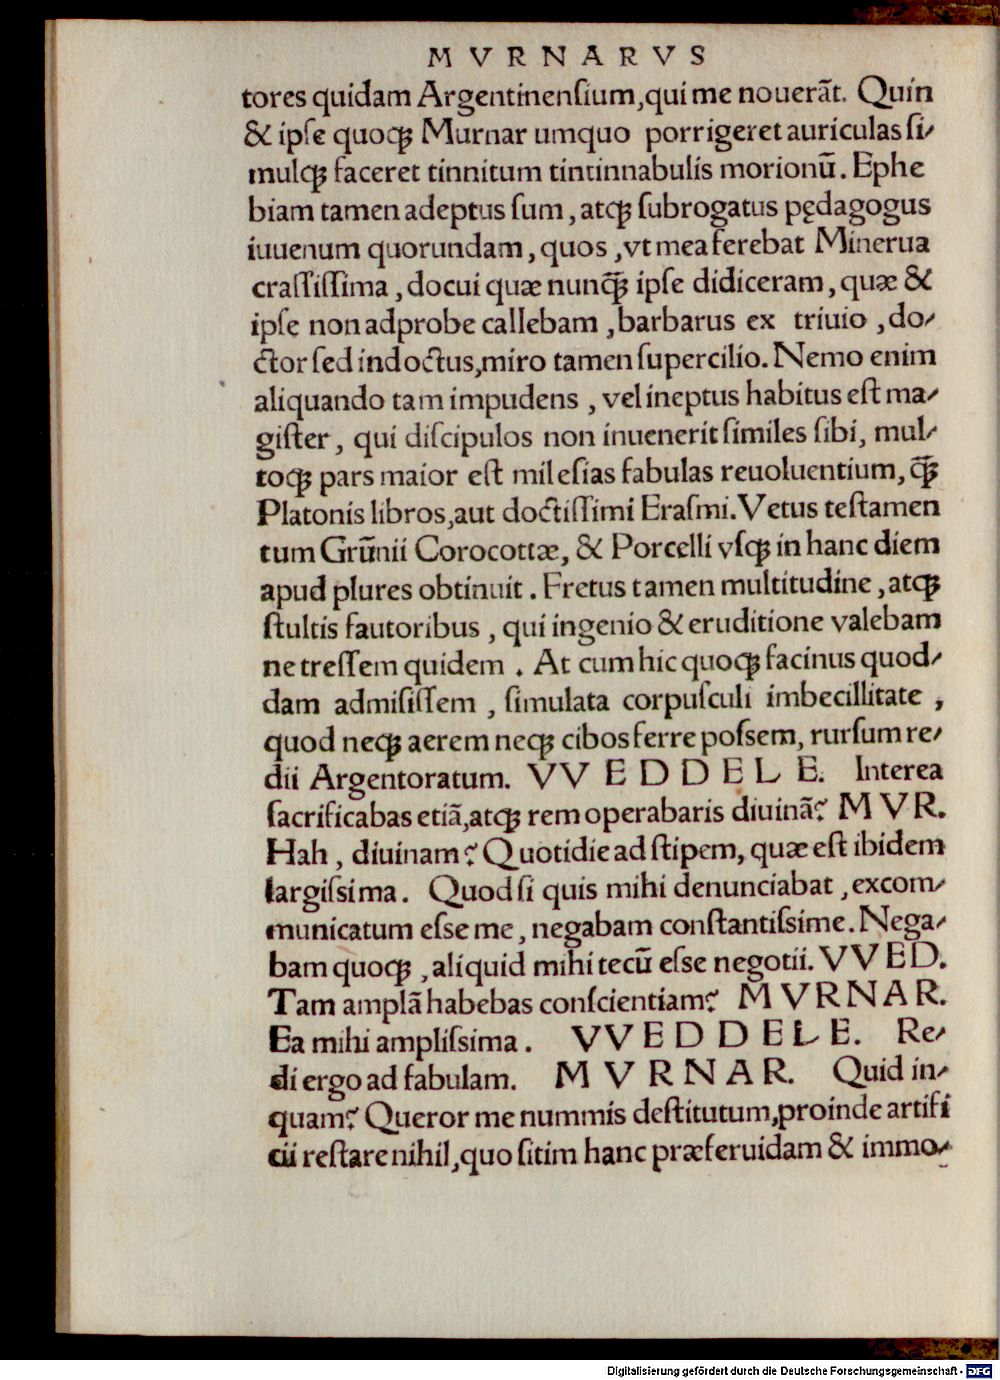 M V R N A R V S
tores quidam Argentinenſium,qui me nouerãt. Quin
& ipſe quoqꝫ Murnar umquo porrigeret auriculas ſi⸗
mulqꝫ faceret tinnitum tintinnabulis morionũ. Ephe
biam tamen adeptus ſum, atqꝫ ſubrogatus pędagogus
iuuenum quorundam, quos ,vt mea ferebat Minerua
craſſiſſima, docui quæ nunq̃ꝫ ipſe didiceram, quæ &
ipſe non adprobe callebam ,barbarus ex triuio ,do⸗
ctor ſed indoctus,miro tamen ſupercilio. Nemo enim
aliquando tam impudens , vel ineptus habitus eſt ma⸗
giſter, qui diſcipulos non inuenerit ſimiles ſibi, mul⸗
toqꝫ pars maior eſt mileſias fabulas reuoluentium, q̃ꝫ
Platonis libros,aut doctiſſimi Eraſmi. Vetus teſtamen
tum Grũnii Corocottæ, & Porcelli vſqꝫ in hanc diem
apud plures obtinuit. Fretus tamen multitudine, atqꝫ
ſtultis fautoribus, qui ingenio & eruditione valebam
ne treſſem quidem. At cum hic quoqꝫ facinus quod⸗
dam admiſiſſem , ſimulata corpuſculi imbecillitate ,
quod neqꝫ aerem neqꝫ cibos ferre poſsem, rurſum re⸗
dii Argentoratum. VV E D D E L E. Interea
ſacrificabas etiã,atqꝫ rem operabaris diuinã? M V R.
Hah, diuinam? Quotidie ad ſtipem, quæ eſt ibidem
largiſsima. Quod ſi quis mihi denunciabat, excom⸗
municatum eſse me, negabam conſtantiſsime. Nega⸗
bam quoqꝫ ,aliquid mihi tecũ eſse negotii. VV E D.
Tam amplã habebas conſcientiam? M V R N A R.
Ea mihi ampliſsima. VV E D D E L E. Re⸗
di ergo ad fabulam. M V R N A R. Quid in⸗
quam? Queror me nummis deſtitutum,proinde artifi
cii reſtare nihil,quo ſitim hanc præferuidam & immo⸗
Digitalisierung gefördert durch die Deutsche Forschungsgemeinschaft - DFG